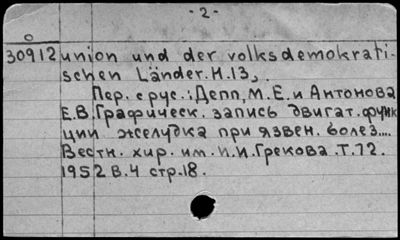 - 2 -
30912 union und der volksdemokrati-
schen Länder. H.13,.
Пер. с рус.: Депп, М.Е. и Антонова
Е.В. Графическ. запись двигат. функ
ции желудка при язвен. болез....
Вестн. хир. им. И.И. Грекова. Т.72.
1952 В.4 стр.18.